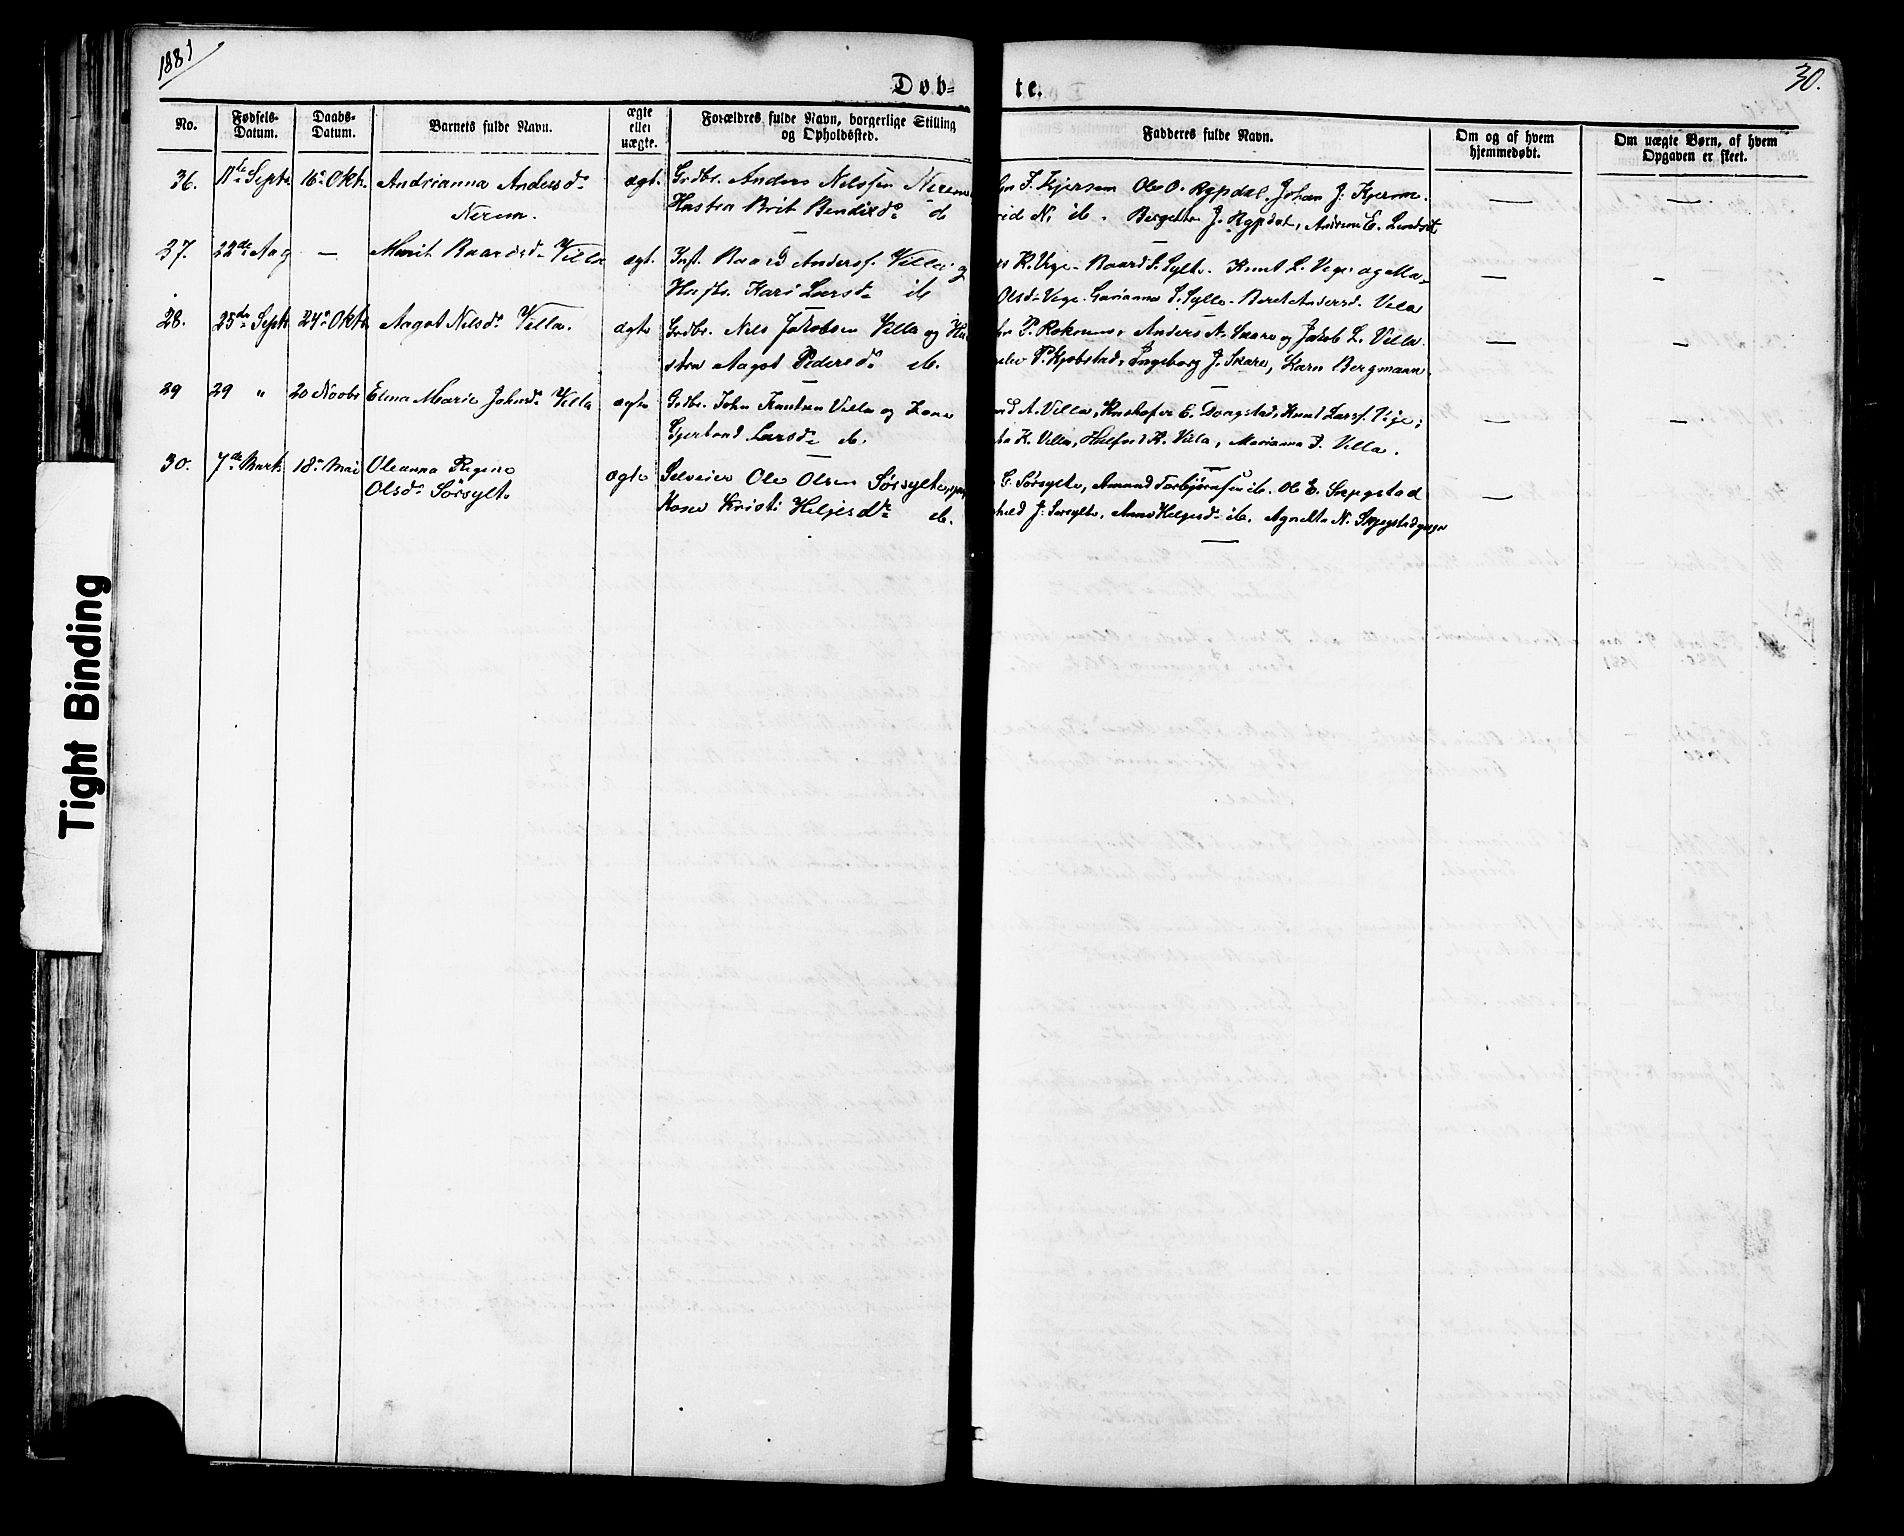 1881
30.
Døb-
te.
No.
Fødsels-
Datum.
Daabs-
Datum.
Barnets fulde Navn.
ægte
eller
uægte.
Forældres fulde Navn, borgerlige Stilling
og Opholdssted.
Faddernes fulde Navn.
Om og af hvem
hjemmedøbt.
Om uægte Børn, af hvem
Opgaven er skeet.
36. 11te Septr. 16de Oktr. Andrianna Andersdr. ægt. Grdbr. Anders Nilssen Nerem
Nerem.
Hustru Brit Bendixdr. ib
F. Kjersem Ole O. Rypdal, Johan J. Kjersem
N. ib. Bergitha J. Rypdal, E. Lindset
37. 22de Aug — Marit Baardsd. Villa ægt. Inst. Baard Anderss. Villa og
Hustr. Kari Larsdr. ib
K. Vege Baard S. Sylte. Knut L. Vege og
Olsdr Vege. Marianna S. Sylte. Beret Andersd. Villa
28. 25de Septr 24de Oktr. Aagot Nilsdr. Villa. ægte Grdbr. Nils Jakobsen Villa og Hu
stru Aagot Pedersdr. ib.
P. Anders A. Skare og Jakob L. Villa
P. Kjøbstad, Ingeborg J. Skare, Karn Bergmann.
29 29 " 20 Novbr Elena Marie Johnsdr. Villa ægte Grdbr. John Knutsen Villa og Kone
Gjertrud Larsdr. ib.
A. Villa, Kristofer E. Dongstad, Knut Larss. Vege,
K. Villa, K. Villa, Marianna S. Villa.
30. 7de Marts 18de Mai Oleanna Regine
Olsdr. Sørsylte
ægte Selveier Ole Olsen Sørsylte
Kone Kristi Helgesdr. ib.
G. Sørsylte, Amund Torbjørnsen ib. Ole E. Skjegstad
J. Sørsylte, Anne Helgesdr ib. Agnethe N. Skjegstad
Tight Binding